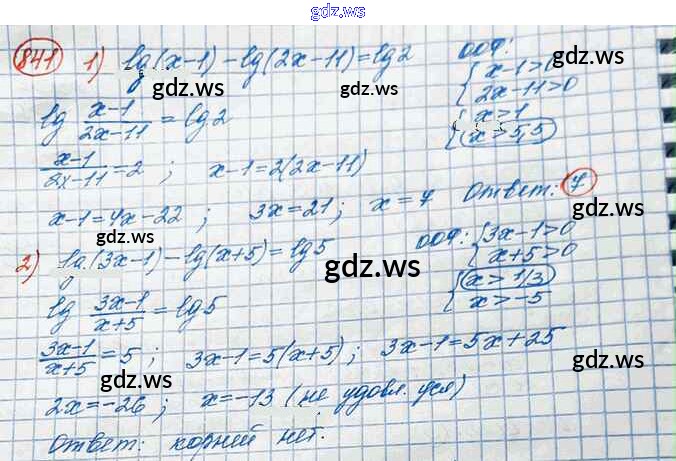 gdz.ws
841 1) lg(x-1)-lg(2x-11)=lg2 ООФ: { x-1>0
gdz.ws { 2x-11>0
gdz.ws
lg (x-1)/(2x-11) = lg2 { x>1
{ x>5,5
(x-1)/(2x-11) = 2 ; x-1=2(2x-11)
gdz.ws
x-1=4x-22 ; 3x=21 ; x=7 Ответ: 7
gdz.ws
2) lg(3x-1)-lg(x+5)=lg5 ООФ: { 3x-1>0
{ x+5>0
gdz.ws
lg (3x-1)/(x+5) = lg5 { x>1/3
{ x>-5
(3x-1)/(x+5) = 5 ; 3x-1=5(x+5) ; 3x-1=5x+25
gdz.ws gdz.ws
2x=-26 ; x=-13 (не удовл. усл)
gdz.ws
Ответ: корней нет.
gdz.ws